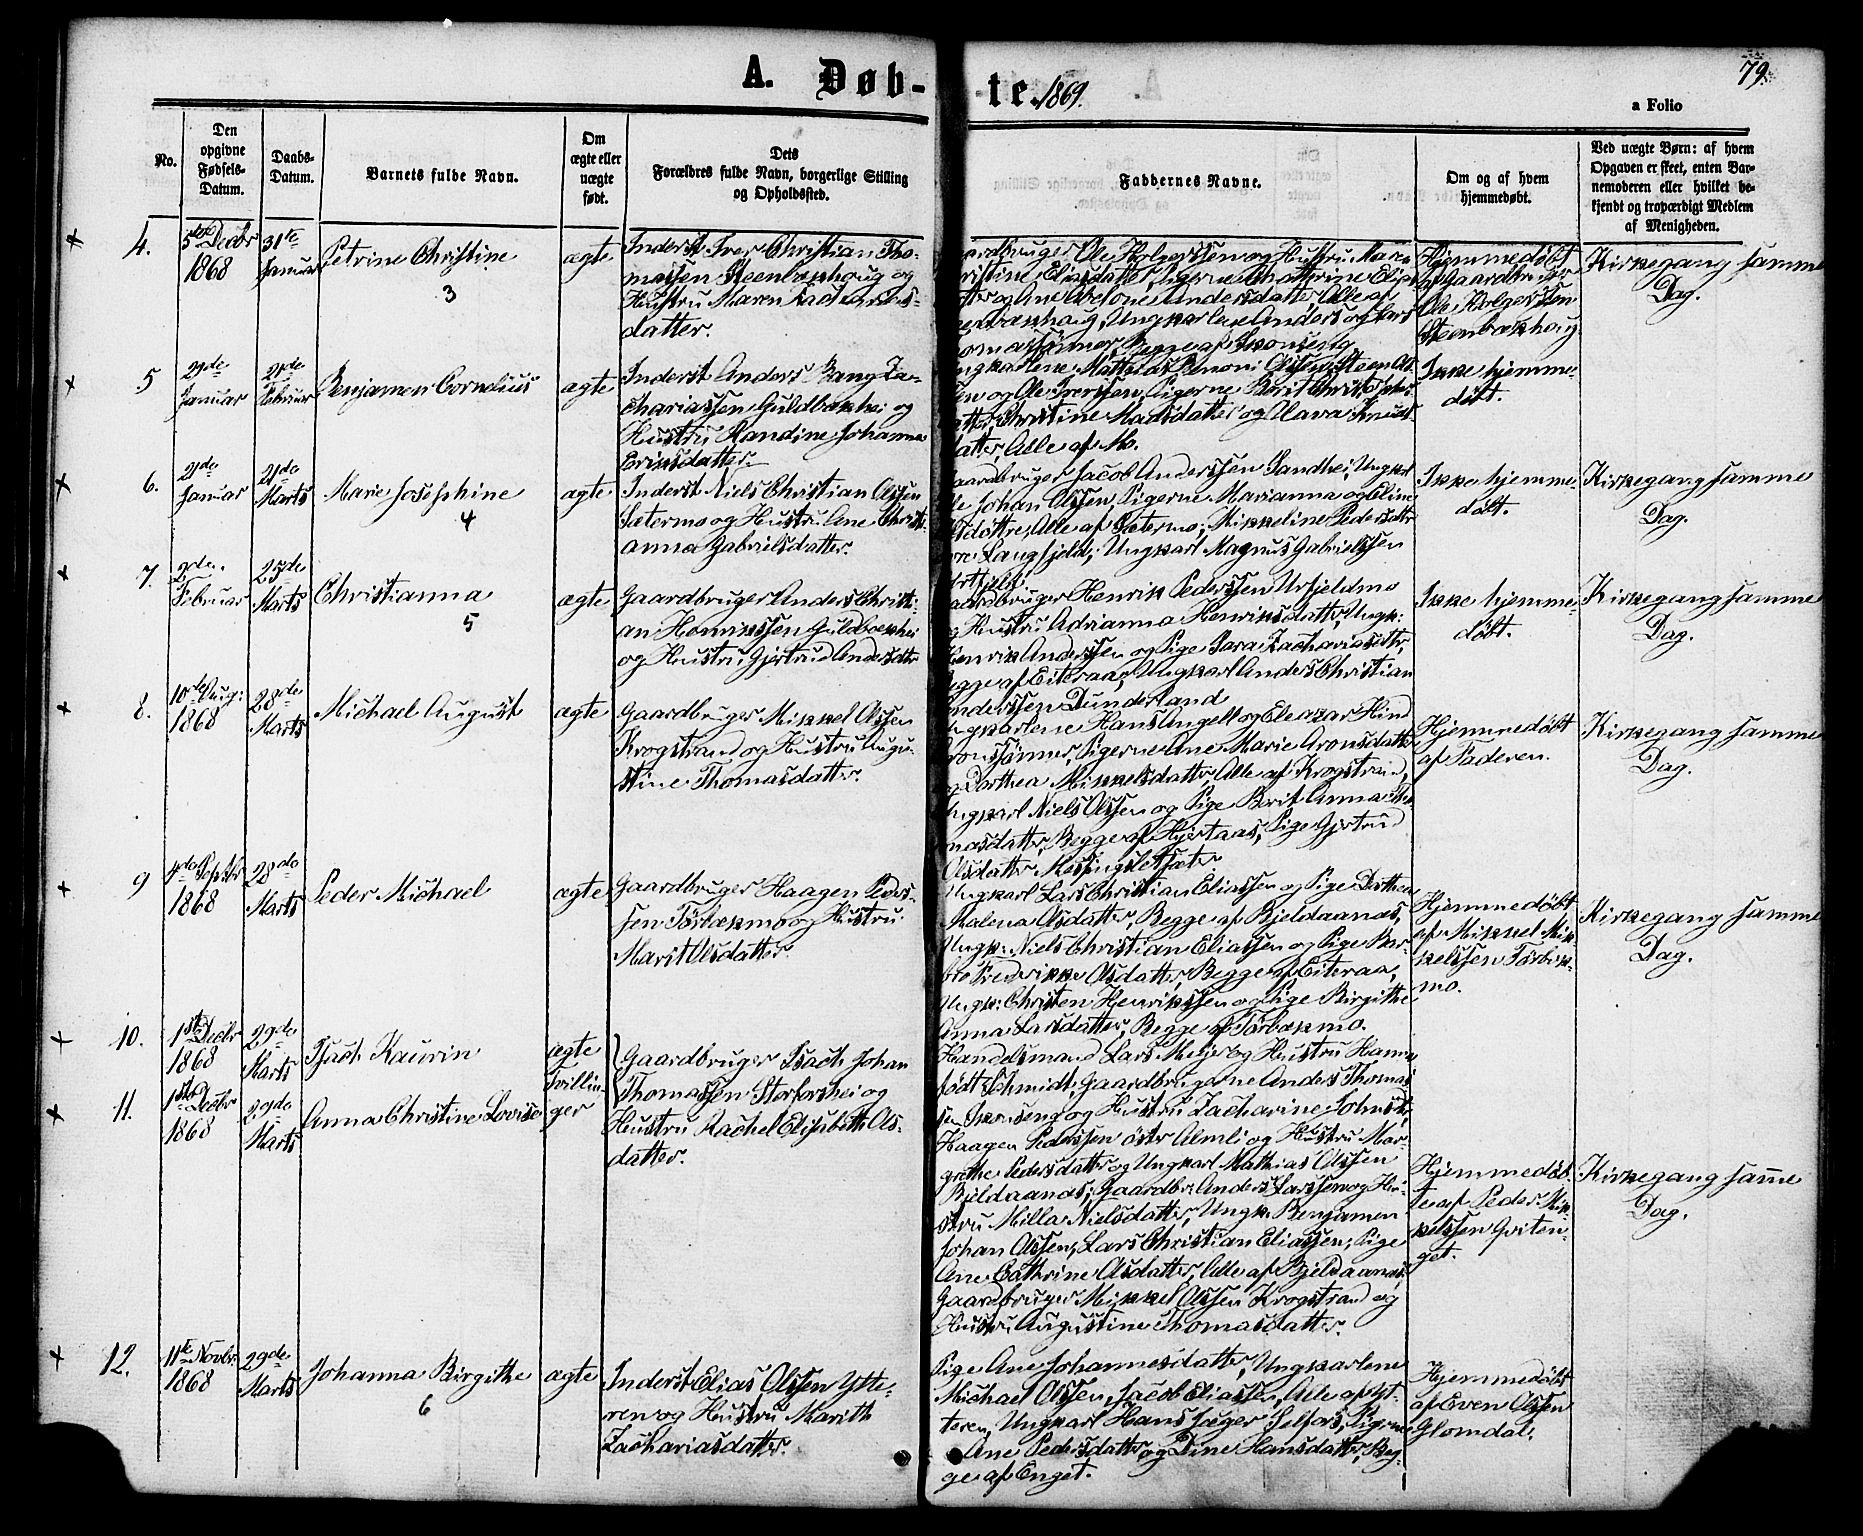 A. Døb-
te. 1869.
79.
a Folio
No.
Den opgivne Fødsels-Datum.
Daabs-Datum.
Barnets fulde Navn.
Om ægte eller uægte født.
Dets Forældres fulde Navn, borgerlige Stilling og Opholdssted.
Faddernes Navne.
Om og af hvem hjemmedøbt.
Ved uægte Børn: af hvem Opgaven er skeet, enten Barnemoderen eller hvilket bekjendt og troværdigt Medlem af Menigheden.
4.
5te Decbr
1868
31te
Januar
Petrine Christine
3
ægte
Inderst Iver Christian Tho-
massen Steenbækhoug og
Hustru Maren Zachariæs-
datter.
Ole Holgerssen og Hustru Maren
Eliasdatter, Pigerne Cathrine Elias-
og Ane Abelone Andersdatter, Alle af
Ungkarlene Anders og Lars
Begge af Skonseng
Hjemmedøbt
af Gaardbruger
Ole Holgerssen
Steenbækhoug
Kirkegang samme
Dag.
5
Januar
21de
Februar
Benjamen Cornelius
ægte
Inderst Anders Bang Za-
chariassen Guldbækhei og
Hustru Randine Johanna
Eriksdatter.
og Ole Iverssen, Pigerne Berit Christophers-
Christine Madsdatter og Clara Knuds-
datter, Alle af M.
Ikke hjemme-
døbt.
6.
2de
Januar
21de
Marts
Marie Josephine
4
ægte
Inderst Niels Christian Olssen
Sætermo og Hustru Ane Christi-
anna Gabrielsdatter.
Jacob Anderssen Sandhei, Ungkarl
Johan Olssen, Pigerne Marianna og Eline
Alle af Sætermo, Mikkeline Pedersdatter
Langfjeld, Ungkarl Magnus Gabrielssen
Ikke hjemme-
døbt.
Kirkegang samme
Dag.
7.
2de
Februar
25de
Marts
Christianna
5
ægte
Gaardbruger Anders Christi-
an Henrikssen Guldbækhei
og Hustru Gjertrud Andersdtr
Henrik Pederssen Urfjeldmo
og Hustru Adrianna Henriksdatter, Ungk:
Henrik Anderssen og Pige Sara Zachariasdtr,
Begge af Eiteraa, Ungkarl Anders Christian
Anderssen Dunderland
Ikke hjemme-
døbt.
Kirkegang samme
Dag.
8.
10de Aug:
1868
28de
Marts
Michael August
ægte
Gaardbruger Mikkel Olssen
Krogstrand og Hustru Augu-
stine Thomasdatter.
Ungkarlene Hans Angell og Eleazar Hind
Aronssønner, Pigerne Ane Marie Aronsdatter
og Dorthea Mikkelsdatter, Alle af Krogstrand,
Ungkarl Niels Olssen og Pige Berit Anna Tho-
masdatter, Begge af Hjertaas, Pige Gjertrud
Olsdatter Messingsletsæter
Hjemmedøbt
af Faderen.
Kirkegang samme
Dag.
9
Septbr
1868
28de
Marts
Peder Michael
ægte
Gaardbruger Haagen Peders-
sen Tørbækmo og Hustru
Marit Olsdatter.
Ungkarl Lars Christian Eliassen og Pige Dorthea
Malena Olsdatter, Begge af Bjeldaanæs,
Ungk: Niels Christian Eliassen og Pige Bar-
bro Fredrikke Olsdatter, Begge af Eiteraa,
Ungk: Christen Henrikssen og Pige Birgithe
Anna Larsdatter, Begge af Tørbækmo.
Hjemmedøbt
af Mikkel Mik-
kelssen Tørbæk-
mo.
Kirkegang samme
Dag.
10.
1ste Decbr
1868
29de
Marts
Isach Kaurin
ægte
Tvillin-
ger
Gaardbruger Isach Johan
Thomassen Storforshei og
Hustru Rachel Elisabeth Ols-
datter.
11.
1ste Decbr
1868
29de
Marts
Anna Christine Lovise
Handelsmand Lars Meyer og Hustru Hanna
født Schmidt, Gaardbrugerne Anders Thomas-
sen Skonseng og Hustru Zacharine Johnsdtr,
Haagen Pederssen østr Almli og Hustru Mar-
grethe Pedersdatter og Ungkarl Mathias Olssen
Bjeldaanæs; Gaardbr: Anders Larssen og Hu-
stru Milla Nielsdatter, Ungk. Benjamen
Johan Olssen, Lars Christian Eliassen, Pige
Ane Cathrine Olsdatter, Alle af Bjeldaanæs,
Gaardbruger Mikkel Olssen Krogstrand og
Hustru Augustine Thomasdatter.
Hjemmedøb-
te af Peder Mik-
kelssen Hviten-
get.
Kirkegang samme
Dag.
12.
11te Novbr.
1868
29de
Marts
Johanna Birgithe
6
ægte
Inderst Elias Olssen Ytte-
ren og Hustru Marith
Zachariasdatter.
Pige Ane Johannesdatter, Ungkarlene
Michael Olssen, Jacob Eliassen, Alle af Yt-
teren, Ungkarl Hans Jæger Selfors, Pigerne
Ane Pedersdatter og Dine Hansdatter, Beg-
ge af Enget.
Hjemmedøbt
af Even Olssen
Glomdal.